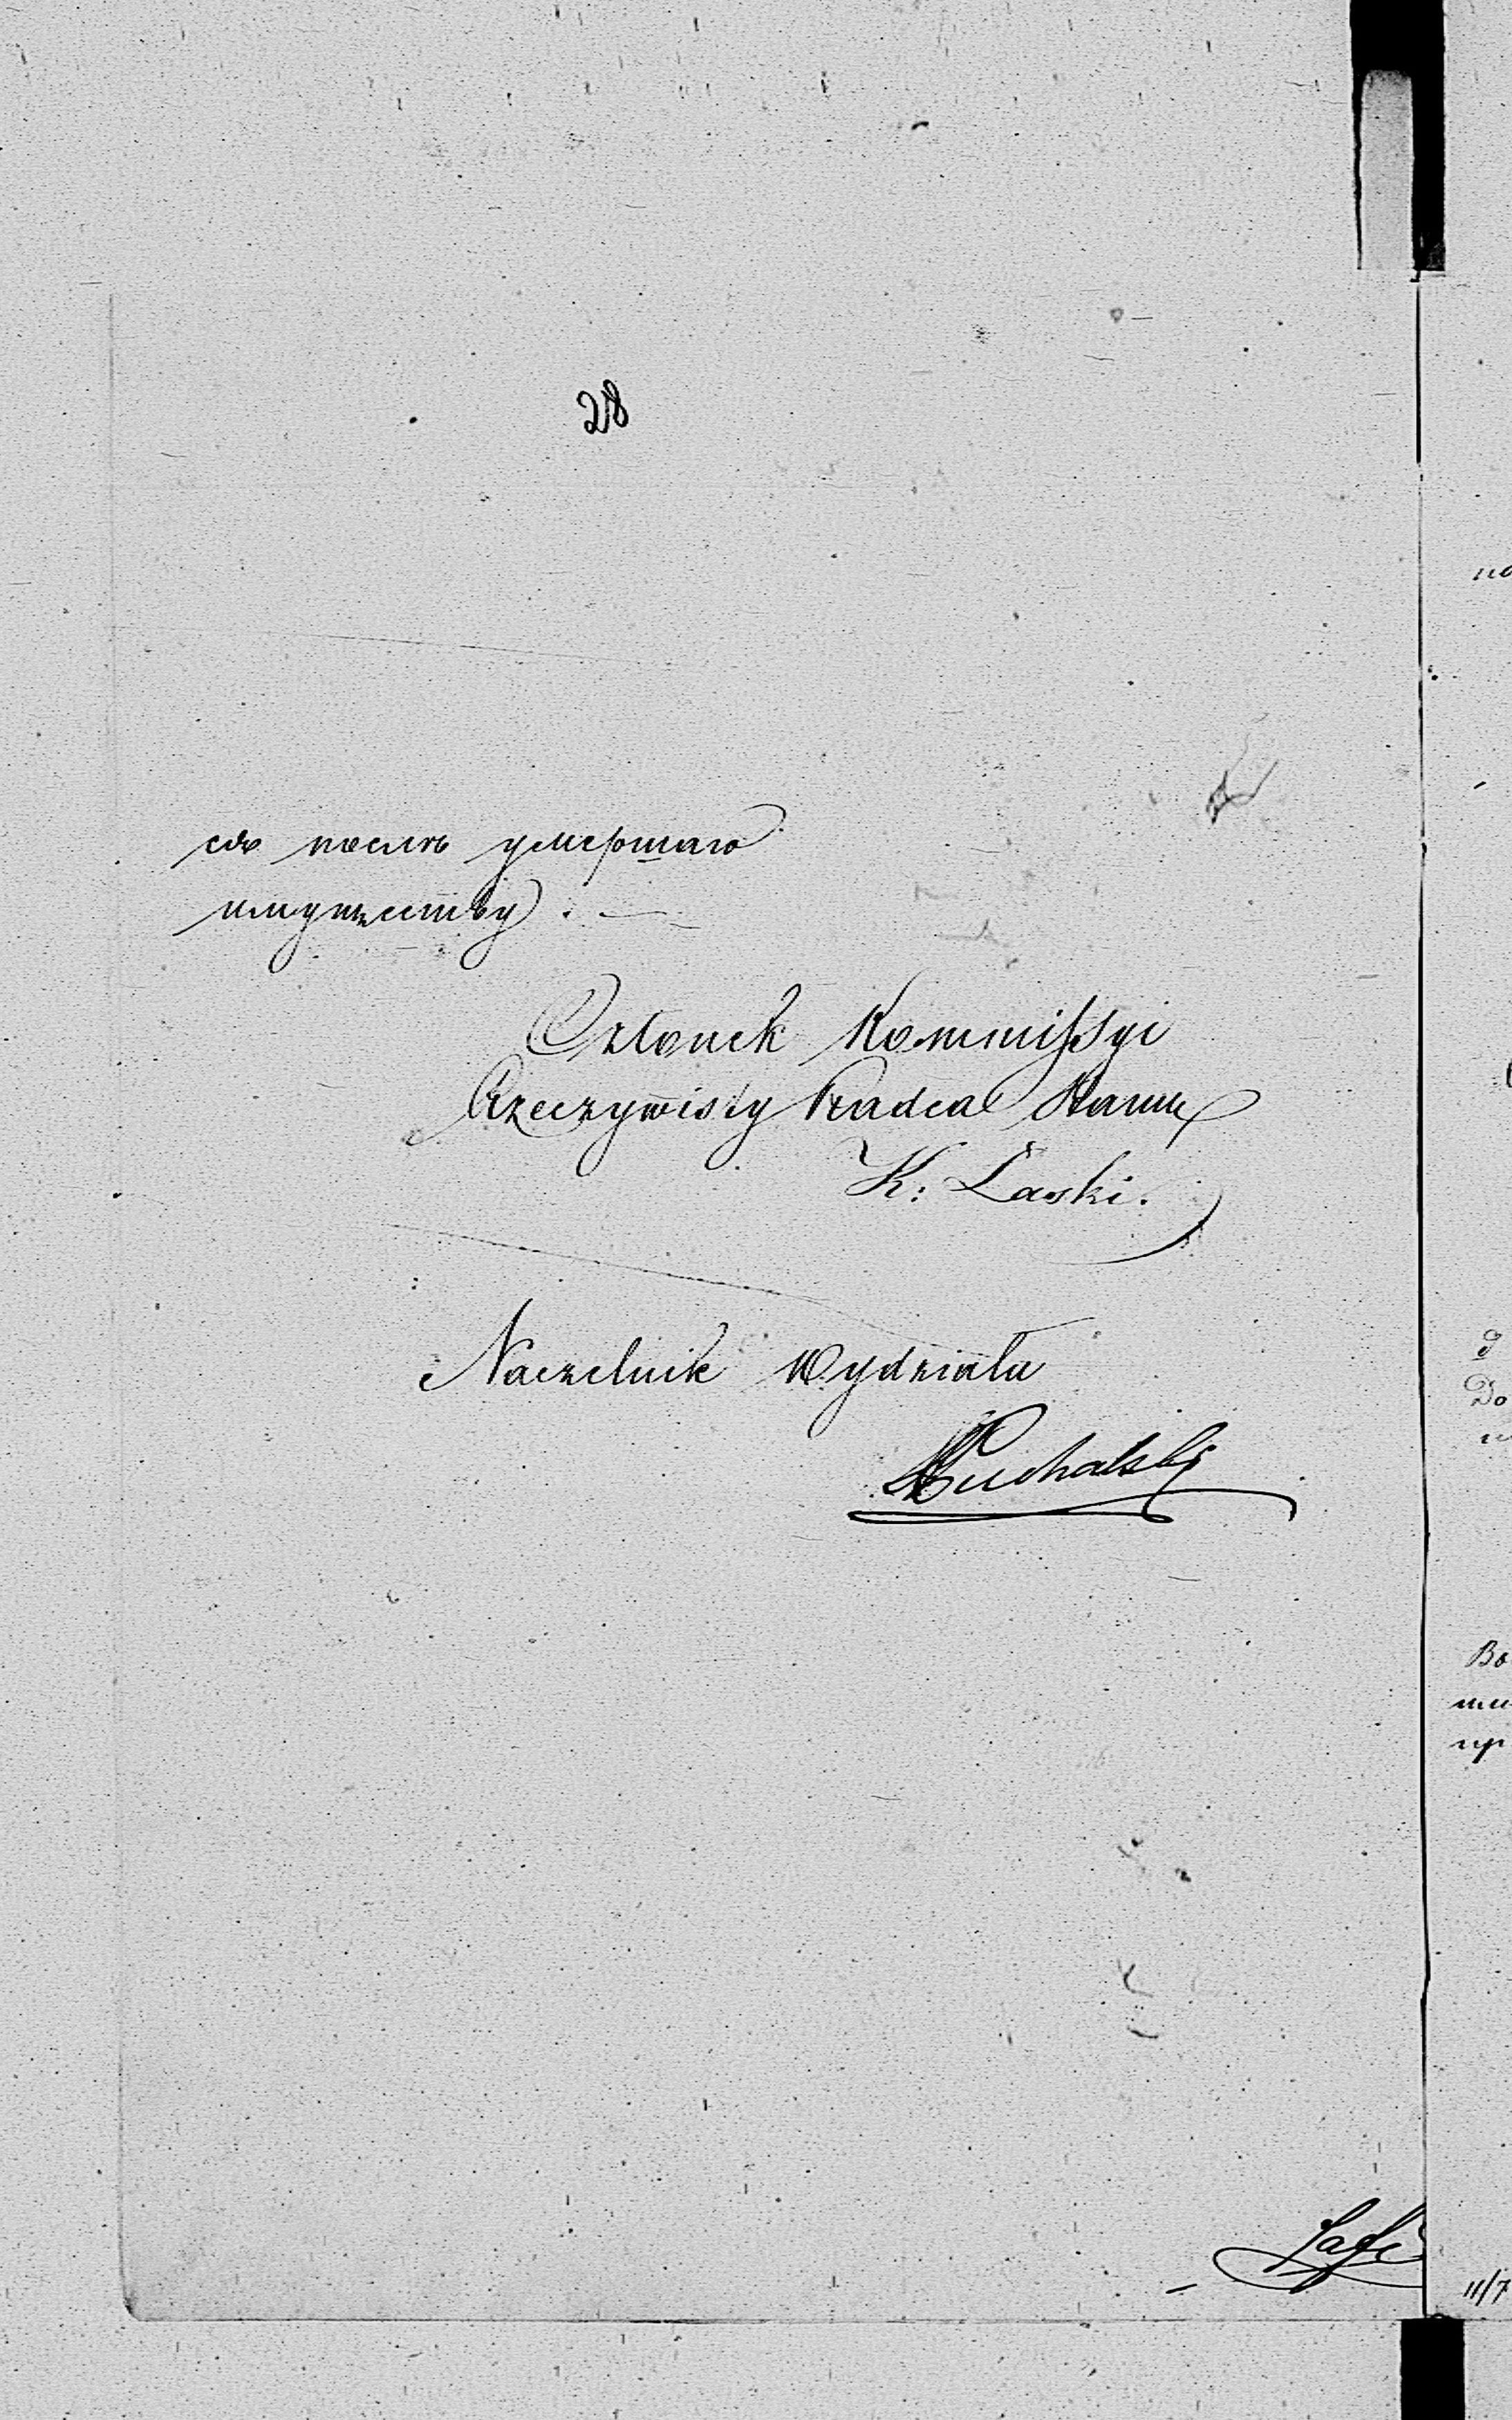 28
ся послѣ умершаго
имуществу. —
Członek Kommissyi
Rzeczywisty Radca Stanu
K: Łaski.
Naczelnik Wydziału
Puchalski